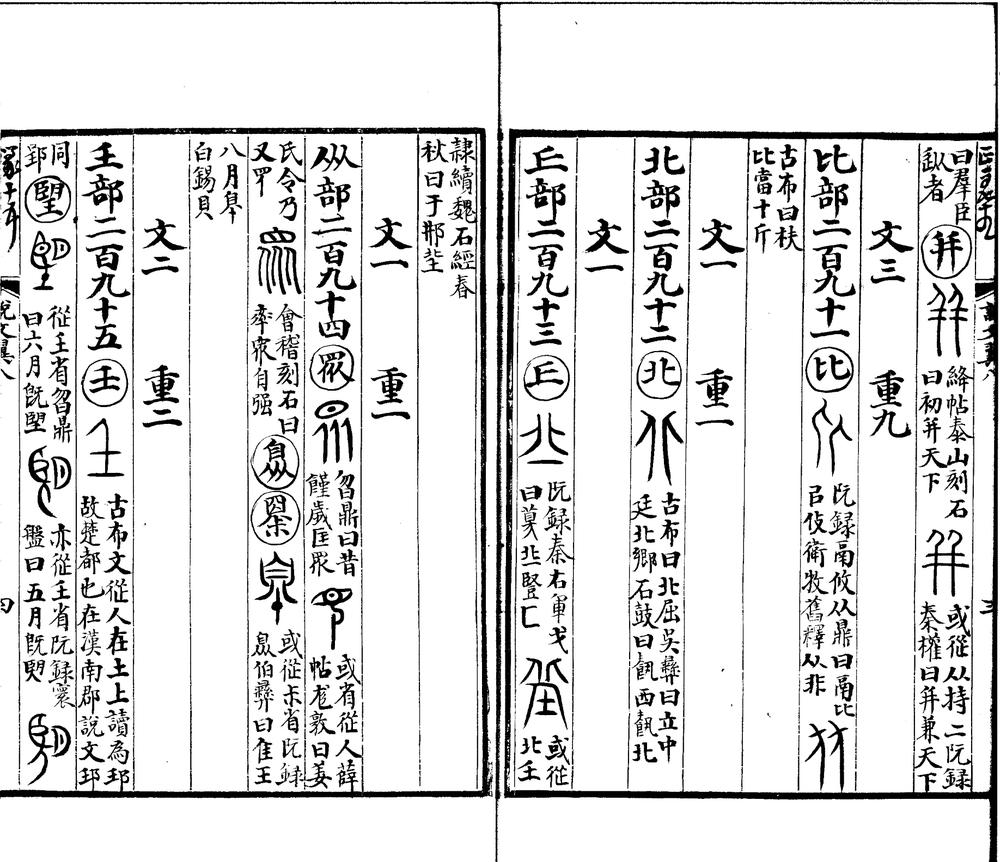 曰羣臣
者
并
絳帖泰山刻石
曰初并天下
或從从持二阮録
秦權曰并兼天下
文三 重九
比部二百九十一 比
阮録鬲攸从鼎曰鬲比
㠯伎衛牧舊釋从非
古布曰枎
比當十斤
文一 重一
北部二百九十二 北
古布曰北屈吳彝曰立中
廷北鄉石鼓曰 西 北
文一
丘部二百九十三 丘
阮録秦右軍戈
曰莫丠豎匚
或從
北𡈼
隷續魏石經春
秋曰于邢丠
文一 重一
㐺部二百九十四 眾
曶鼎曰昔
饉歲匡眾
或省從人薛
帖 敦曰姜
氏令乃
又罒
會稽刻石曰
率眾自强
臮
或從 省阮録
臮伯彝曰隹王
八月皋
白錫貝
文二 重二
𡈼部二百九十五 𡈼
古布文從人在土上讀為
故楚都也在漢南郡說文
同
朢
從𡈼省曶鼎
曰六月旣朢
亦從𡈼省阮録寰
盤曰五月旣
說文翼八
四